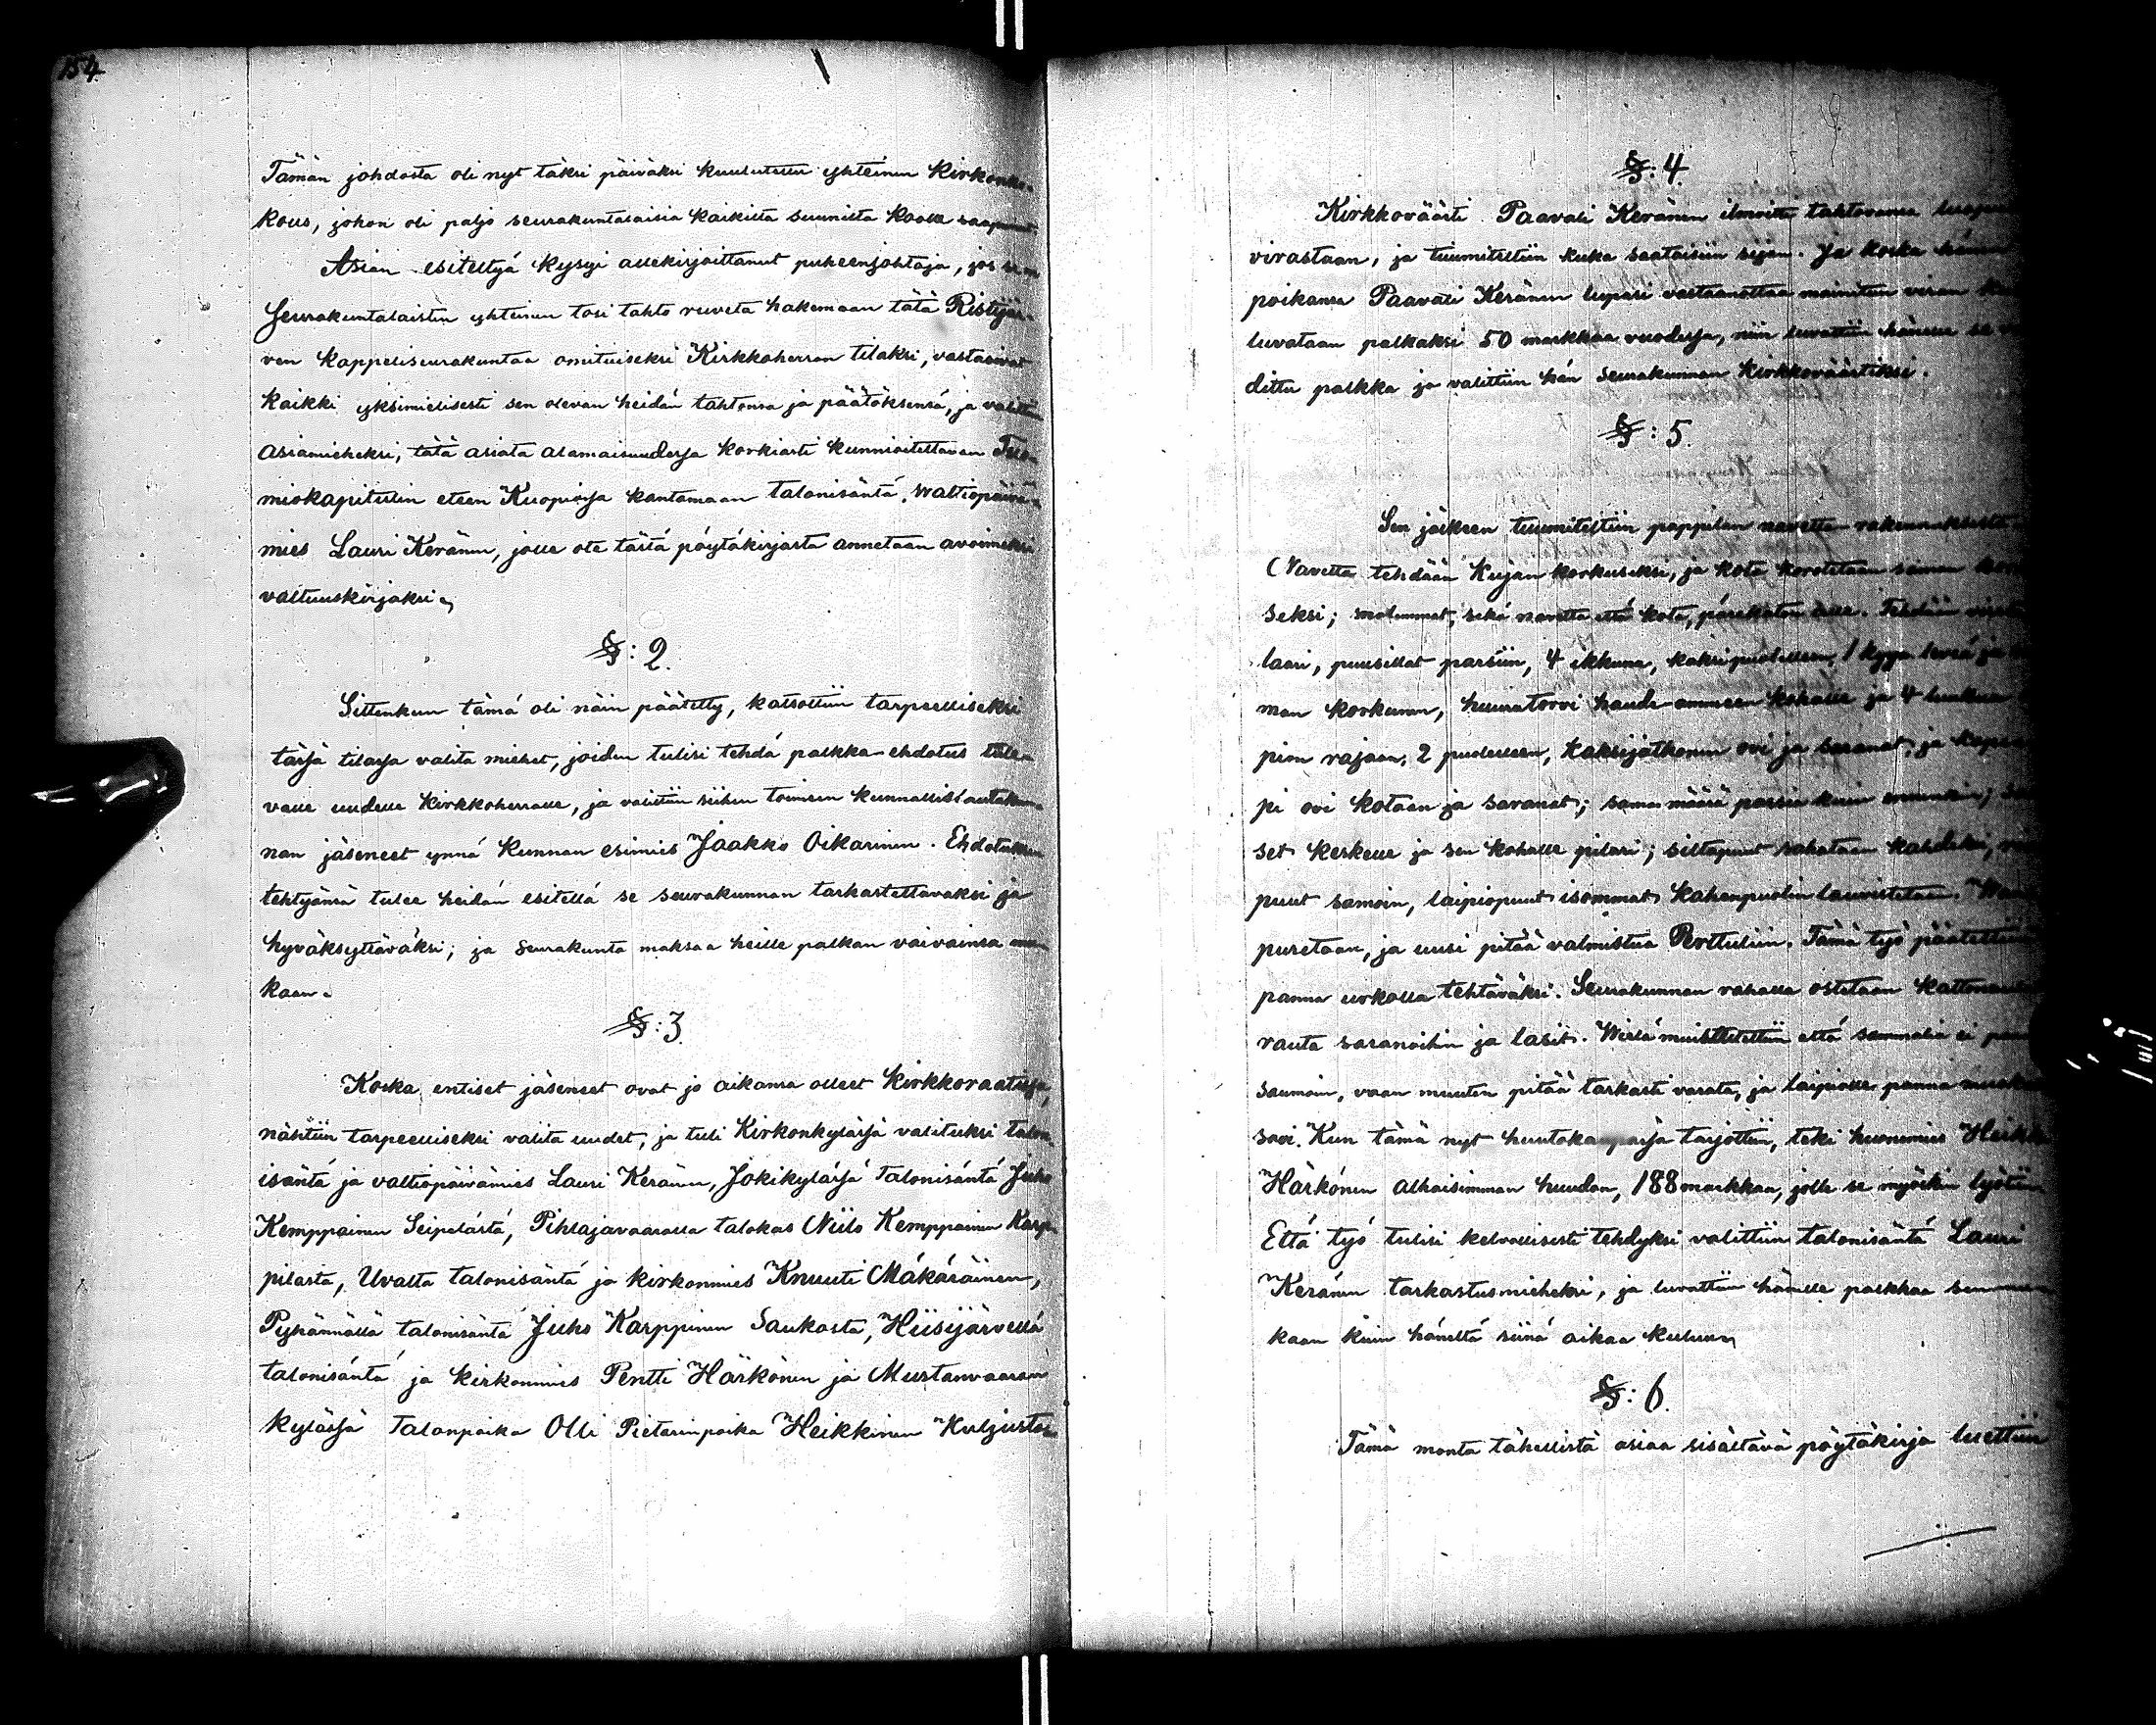 154
Tämän johdosta oli nyt täksi päiväksi kuulutettu yhteinen Kirkonko-
kous, johon oli paljo seurakuntalaisia kaikilta suunilta koolle saapunut
Asian esiteltyä kysyi allekirjoittanut puheenjohtaja, jos se on
Seurakuntalaisten yhteinen tosi tahto ruveta hakemaan tätä Ristijär-
ven kappeliseurakuntaa omituiseksi Kirkkoherran tilaksi, vastasivat
kaikki yksimielisesti sen olevan heidän tahtonsa ja päätöksensä, ja valittiin
asiamieheksi, tätä asiata asamaisuudessa korkiasti kunnioitettavan Tuo-
miokapitulin eteen Kuopiossa kantamaan talonisäntä, Waltiopäivä-
mies Lauri Keränen, jolle ote tästä pöytäkirjasta annetaan avoimeksi
valtuuskirjaksi.
§: 2.
Sittenkun tämä oli näin päätetty, katsottiin tarpeelliseksi
tässä tilassa valita miehet, joiden tulisi tehdä palkka-ehdotus tule-
valle uudelle Kirkkoherralle, ja valittiin siihen toimeen kunnallislautakun-
nan jäseneet ynnä kunnan esimies Jaakko Oikarinen. Ehdotuksen
tehtyänsä tulee heidän esitellä se seurakunnan tarkastettavaksi ja
hyväksyttäväksi; ja seurakunta maksaa heille palkan vaivainsa mu-
kaan.
§: 3.
Koska entiset jäseneet ovat jo aikansa olleet Kirkkoraatissa,
nähtiin tarpeelliseksi valita uudet, ja tuli Kirkonkylässä valituksi talon-
isäntä ja valtiopäivämies Lauri Keränen, Jokikylässä Talonisäntä Juho
Kemppainen Seipelästä, Pihlajavaaralla talokas Niilo Kemppainen Karp-
pilasta, Uvalta talonisäntä ja kirkonmies Knuuti Mäkäräinen,
Pyhännällä talonisäntä Juho Karppinen Saukosta, Hiisijärvellä
talonisäntä ja kirkonmies Pentti Härkönen ja Mustanvaaran
kylässä Talonpoika Olli Pietarinpoika Heikkinen Kuljusta
§: 4.
Kirkkoväästi Paavali Keränen ilmoitti tahtovansa luopua
virastaan, ja tuumiteltiin kuka saataisiin sijan. Ja koska hänen
poikansa Paavali Keränen lupasi vastaanottaa mainitun viran
luvataan palkaksi 50 markkaa vuodessa, niin luvattiin hänelle se
dittu palkka ja valittiin hän seurakunnan Kirkkoväärtiksi.
§: 5.
Sen jälkeen tuumiteltiin pappilan navetta rakennuksesta
Navetta tehdään Kujan korkuseksi, ja kota korotetaan saman kor
seksi; molemmat, sekä navetta että kota, pärekaton alle. Tehdään
laari, puusillat parsiin, 4 ikkuna, kaksi puolelleen, 1 kyyn. leviä ja
man korkunen, huuratorvi haude-ammeen kohalle ja 4 luukun
pion rajaan, 2 puolelleen, Kaksijatkonen ovi ja saranat, ja
pi ovi kotaan ja saranat; sama määrä parsia kuin ennenkin;
set keskelle ja sen kohalle pilari; siltapuut sahataan kahdeksi,
puut samoin, laipiopuut isommat kahenpuolin lauvistetaan.
puretaan, ja uusi pitää valmistua Perttuliin. Tämä työ päätettiin
panna urkalla tehtäväksi. Seurakunnan rahalla ostetaan
rauta saranoihin ja lasit. Wielä muistutettiin että sammalia ei
saumoin, vaan muuten pitää tarkasti varata, ja laipiolle panna
savi. Kun tämä nyt huutokaupassa tarjottiin, teki huonemies Heikki
Härkönen alhaisimman huudon, 188 markkaa, jolle se myöskin lyötiin
Että työ tulisi kelvollisesti tehdyksi valittiin talonisäntä Lauri
Keränen tarkastusmieheksi, ja luvattiin hänelle palkkaa sen mu
kaan kuin häneltä siinä aikaa kuluu.
§: 6.
Tämä monta tähellistä asiaa sisältävä pöytäkirja luettiin